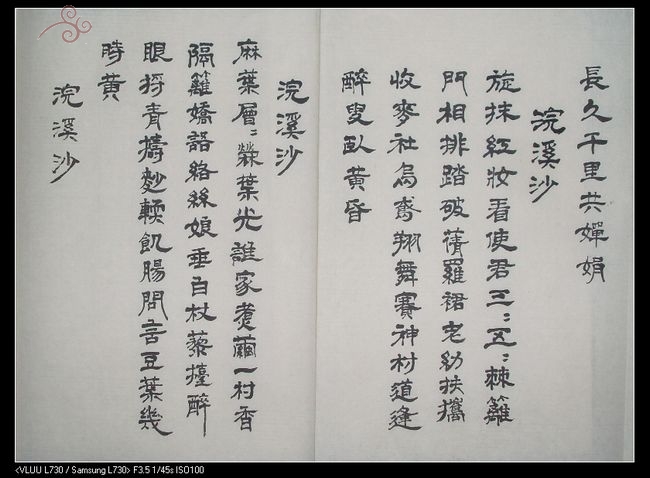 長久千里共嬋娟
浣溪沙
旋抹紅妝看使君三〻五〻棘籬
門相排踏破蒨羅裙老幼扶攜
收麥社烏鳶翔舞賽神村道逢
醉叟臥黃昏
浣溪沙
麻葉層〻檾葉光誰家煮繭一村香
隔籬嬌語絡絲娘垂白杖藜擡醉
眼捋青擣麨輭飢腸問言豆葉幾
時黃
浣溪沙
<VLUU L730 / Samsung L730> F3.5 1/45s ISO100